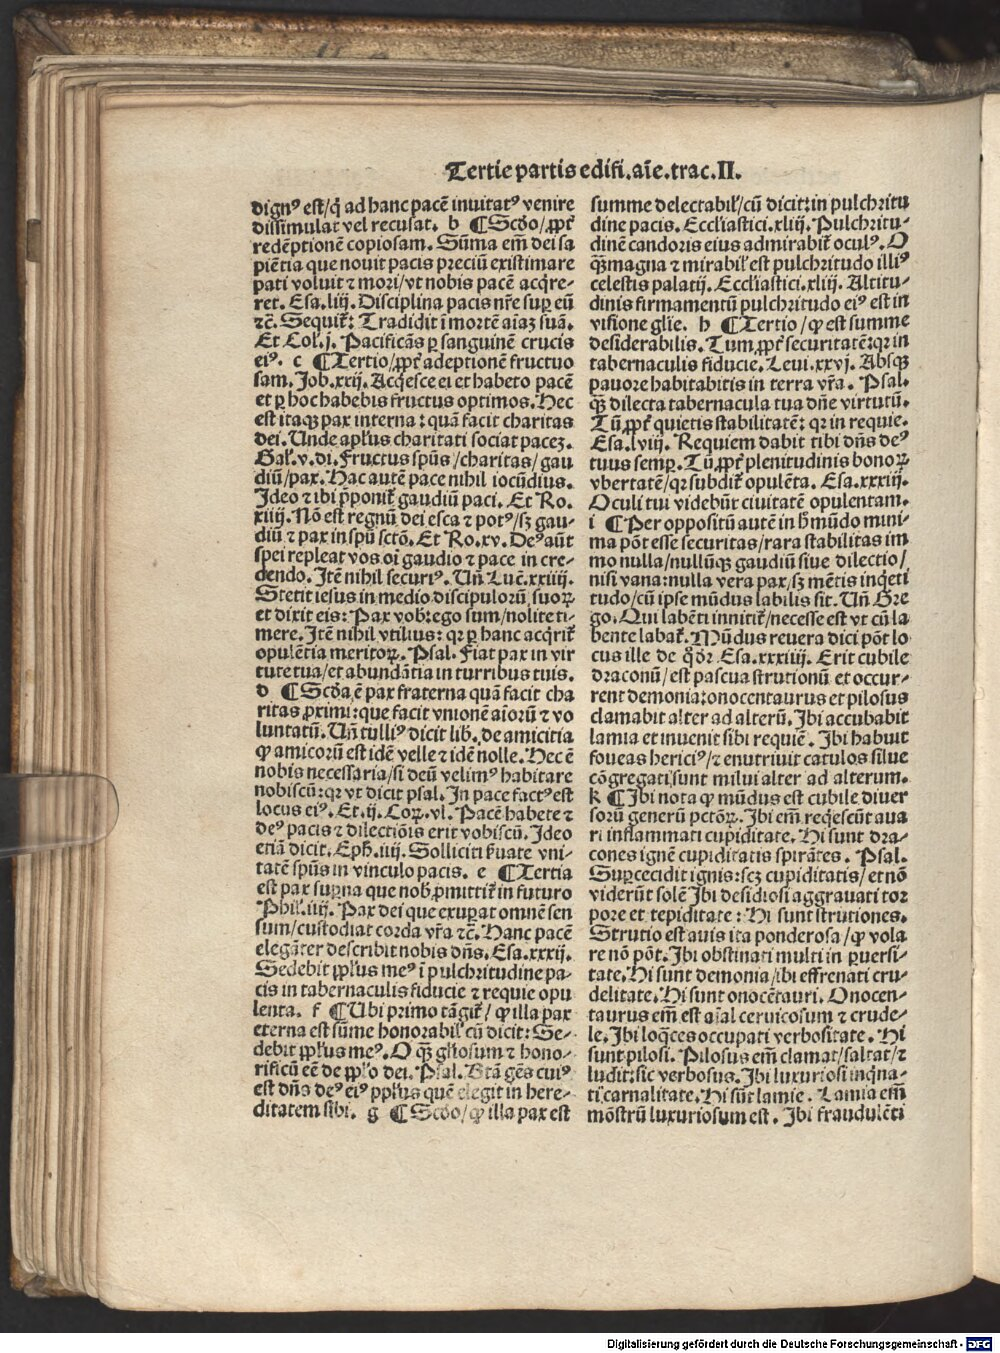 Tertie partis edifi. aīe. trac. II.
dignꝰ est/q̇ ad hanc pacē inuitatꝰ venire
dissimulat vel recusat. b ¶ Scd̄o/ꝓpt̄
redēptionē copiosam. Sūma em̄ dei sa
piētia que nouit pacis preciū existimare
pati voluit ⁊ mori/vt nobis pacē acq̇re-
ret. Esa. liij. Disciplina pacis nr̄e suꝑ eū
⁊c̄. Sequit̄: Tradidit ī mortē aīaꝫ suā.
Et Col̄. j. Pacificās ꝑ sanguinē crucis
eiꝰ. c ¶ Tertio/ꝓpt̄ adeptionē fructuo
sam. Job. xxij. Acq̇esce ei et habeto pacē
et ꝑ hoc habebis fructus optimos. Hec
est itaqꝫ pax interna: quā facit charitas
dei. Unde apl̄us charitati sociat paceꝫ.
Gal̄. v. di. Fructus spūs/charitas/gau
diū/pax. Hac autē pace nihil iocūdius.
Ideo ⁊ ibi p̄ponit̄ gaudiū paci. Et Ro.
xiiij. Nō est regnū dei esca ⁊ potꝰ/sꝫ gau-
diū ⁊ pax in spū sctō. Et Ro. xv. Deꝰ aūt
spei repleat vos oī gaudio ⁊ pace in cre-
dendo. Itē nihil securiꝰ. Un̄ Luc̄. xxiiij.
Stetit iesus in medio discipulorū suoꝝ
et dixit eis: Pax vob̄: ego sum/nolite ti-
mere. Itē nihil vtilius: qꝛ ꝑ hanc acq̇rit̄
opulētia meritoꝝ. Psal. Fiat pax in vir
tute tua/et abundātia in turribus tuis.
d ¶ Scd̄a ē pax fraterna quā facit cha
ritas ꝓximi: que facit vnionē aīorū ⁊ vo
luntatū. Un̄ tulliꝰ dicit lib̄. de amicitia
ꝙ amicorū est idē velle ⁊ idē nolle. Hec ē
nobis necessaria/si deū velimꝰ habitare
nobiscū: qꝛ vt dicit psal. In pace factꝰ est
locus eiꝰ. Et. ij. Coꝝ. vl. Pacē habete ⁊
deꝰ pacis ⁊ dilectiōis erit vobiscū. Ideo
etiā dicit. Eph̄. iiij. Solliciti ẜuate vni-
tatē spūs in vinculo pacis. e ¶ Tertia
est pax suꝑna que nob̄ ꝓmittit̄ in futuro
Phil̄. iiij. Pax dei que exuꝑat omnē sen
sum/custodiat corda vr̄a ⁊c̄. Hanc pacē
elegāter describit nobis dn̄s. Esa. xxxij.
Sedebit ppl̄us meꝰ ī pulchritudine pa-
cis in tabernaculis fiducie ⁊ requie opu
lenta. f ¶ Ubi primo tāgit̄/ꝙ illa pax
eterna est sūme honorabil̄ cū dicit: Se-
debit ppl̄us meꝰ. O qꝫ̄ gl̄iosum ⁊ hono-
rificū eē de ppl̄o dei. Psal. Btā gēs cuiꝰ
est dn̄s deꝰ eiꝰ ppl̄us quē elegit in here-
ditatem sibi. g ¶ Scd̄o/ꝙ illa pax est
summe delectabil̄/cū dicit: in pulchritu
dine pacis. Eccl̄iastici. xliij. Pulchritu-
dinē candoris eius admirabit̄ oculꝰ. O
qꝫ̄ magna ⁊ mirabil̄ est pulchritudo illiꝰ
celestis palatij. Eccl̄iastici. xliij. Altitu-
dinis firmamentū pulchritudo eiꝰ est in
visione gl̄ie. h ¶ Tertio/ꝙ est summe
desiderabilis. Tum ꝓpt̄ securitatē: qꝛ in
tabernaculis fiducie. Leui. xxvj. Absqꝫ
pauore habitabitis in terra vr̄a. Psal.
qꝫ̄ dilecta tabernacula tua dn̄e virtutū.
Tū ꝓpt̄ quietis stabilitatē: qꝛ in requie.
Esa. lviij. Requiem dabit tibi dn̄s deꝰ
tuus semꝑ. Tū ꝓpt̄ plenitudinis bonoꝝ
vbertatē/qꝛ subdit̄ opulēta. Esa. xxxiij.
Oculi tui videbūt ciuitatē opulentam.
i ¶ Per oppositū autē in h̄ mūdo mini-
ma pōt esse securitas/rara stabilitas im
mo nulla/nullūqꝫ gaudiū siue dilectio/
nisi vana: nulla vera pax/sꝫ mētis inq̇eti
tudo/cū ipse mūdus labilis sit. Un̄ Gre
go. Qui labēti innitit̄/necesse est vt cū la
bente labat̄. Mūdus reuera dici pōt lo
cus ille de q̊ dr̄. Esa. xxxiiij. Erit cubile
draconū/est pascua strutionū et occur-
rent demonia: onocentaurus et pilosus
clamabit alter ad alterū. Ibi accubabit
lamia et inuenit sibi requiē. Ibi habuit
foueas hericiꝰ/⁊ enutriuit catulos silue
cōgregati sunt milui alter ad alterum.
k ¶ Ibi nota ꝙ mūdus est cubile diuer
sorū generū pctōꝝ. Ibi em̄ reqꝫescūt aua
ri inflammati cupiditate. Hi sunt dra-
cones ignē cupiditatis spirātes. Psal.
Suꝑcecidit ignis: scꝫ cupiditatis/et nō
viderūt solē Ibi desidiosi aggrauati tor
pore et tepiditate: Hi sunt strutiones.
Strutio est auis ita ponderosa/ꝙ vola
re nō pōt. Ibi obstinati multi in ꝑuersi-
tate. Hi sunt demonia/ibi effrenati cru-
delitate. Hi sunt onocētauri. Onocen-
taurus em̄ est aīal ceruicosum ⁊ crude-
le. Ibi loq̇ces occupati verbositate. Hi
sunt pilosi. Pilosus em̄ clamat/saltat/⁊
ludit: sic verbosus. Ibi luxuriosi inq̇na-
ti carnalitate. Hi sūt lamie. Lamia em̄
mōstrū luxuriosum est. Ibi fraudulēti
Digitalisierung gefördert durch die Deutsche Forschungsgemeinschaft - DFG